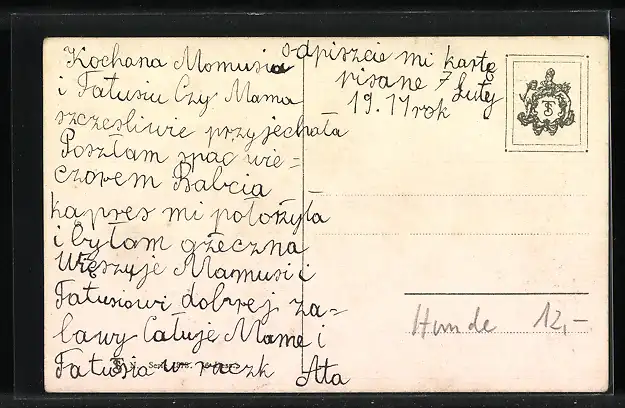 Kochana Momusiu
i Tatusiu Czy Mama
szczesliwie przyjechała
Poszłam spac wie=
czorem Babcia
kąpres mi położyła
i byłam grzeczna
Mamusi i
Tatusiowi dobrej za=
bawy Całuje Mame i
Tatusia w raczk Ata
odpiszcie mi kartę
pisane 7 Luty
19.11 rok
TS
Hunde 12,-